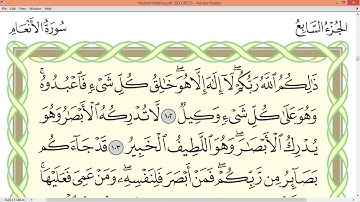 Mushaf-Madina.pdf (SECURED) - Adobe Reader
الجزء السابع
سورة الأنعام
ذَٰلِكُمُ ٱللَّهُ رَبُّكُمْ ۖ لَآ إِلَٰهَ إِلَّا هُوَ ۖ خَٰلِقُ كُلِّ شَىْءٍ فَٱعْبُدُوهُ ۚ
وَهُوَ عَلَىٰ كُلِّ شَىْءٍ وَكِيلٌ ١٠٢ لَّا تُدْرِكُهُ ٱلْأَبْصَٰرُ وَهُوَ
يُدْرِكُ ٱلْأَبْصَٰرَ ۖ وَهُوَ ٱللَّطِيفُ ٱلْخَبِيرُ ١٠٣ قَدْ جَآءَكُم
بَصَآئِرُ مِن رَّبِّكُمْ ۖ فَمَنْ أَبْصَرَ فَلِنَفْسِهِۦ ۖ وَمَنْ عَمِىَ فَعَلَيْهَا ۚ